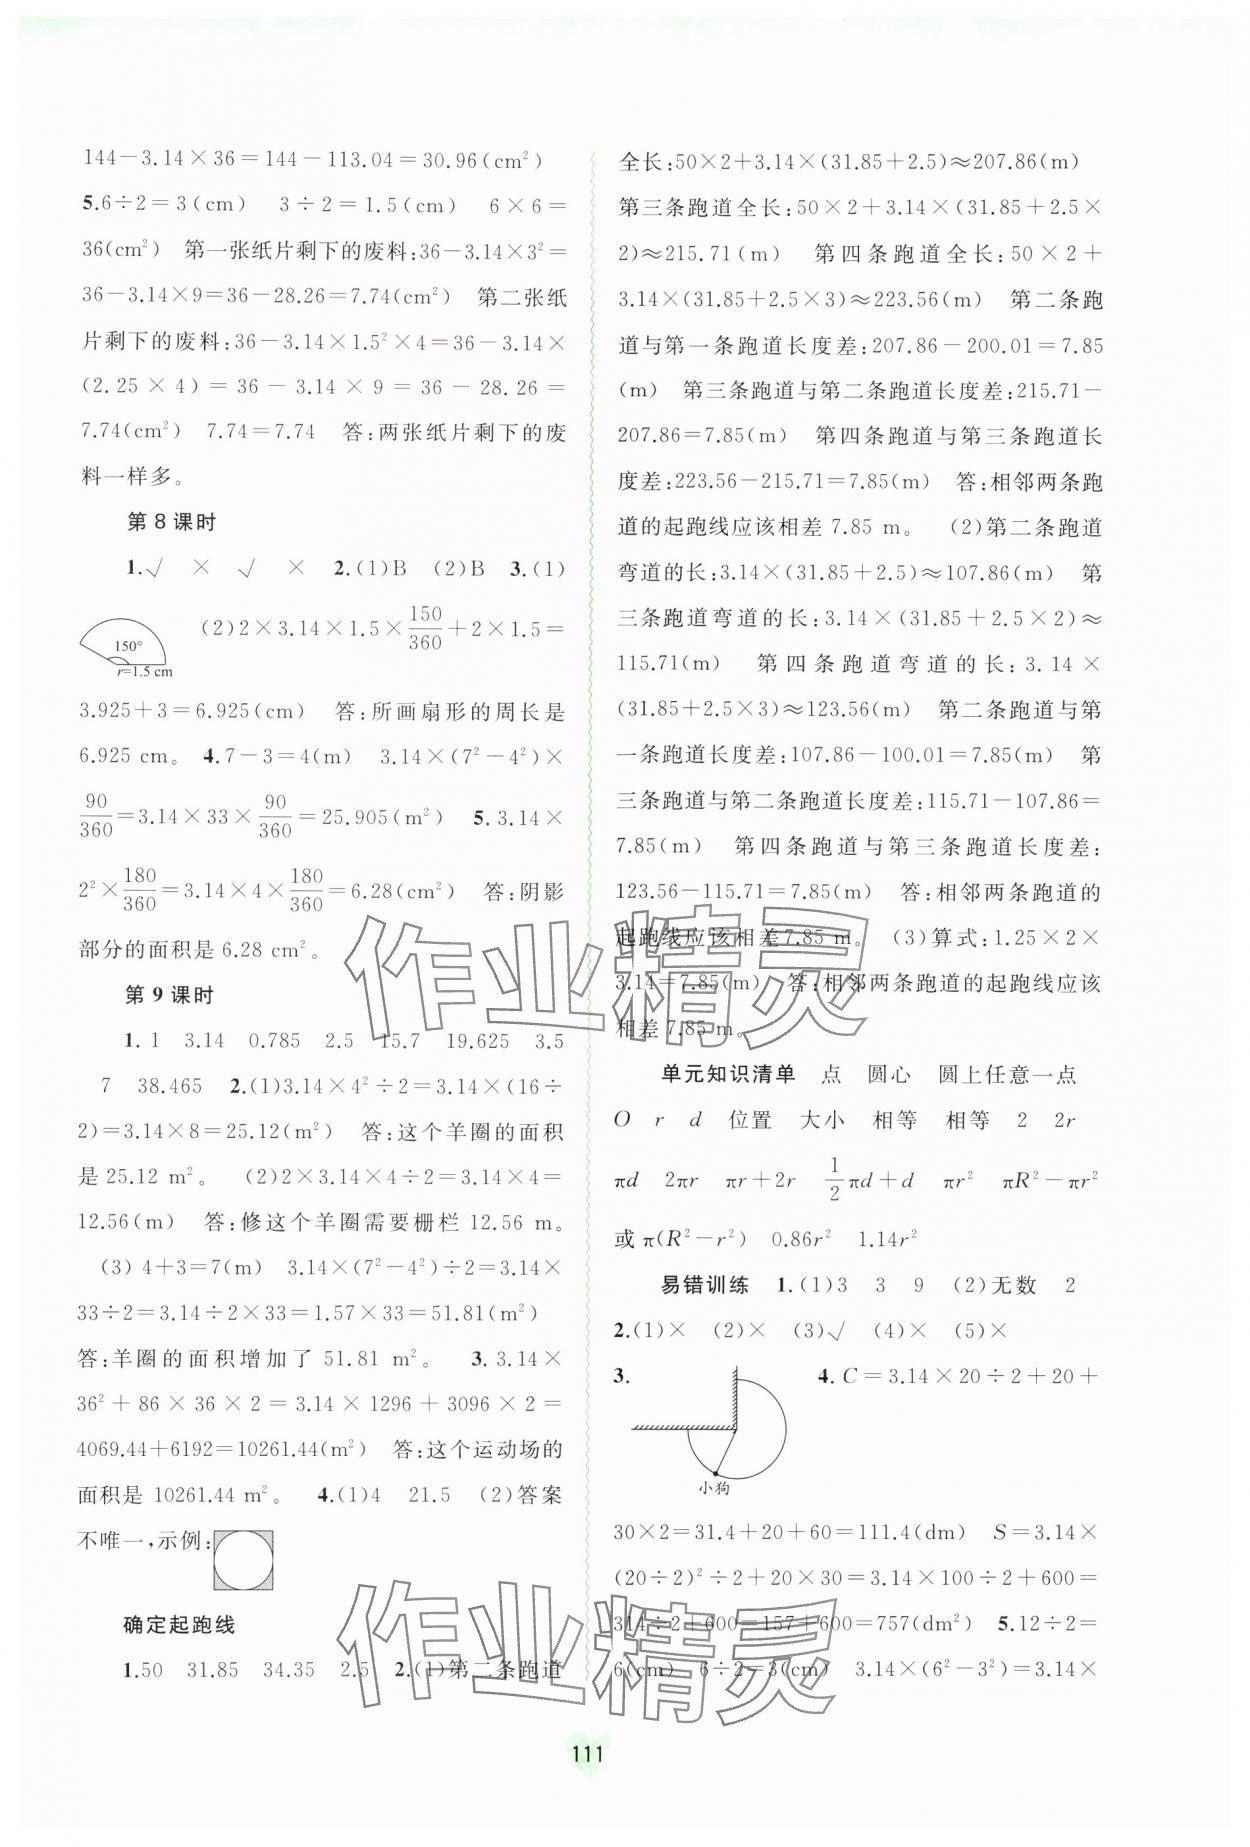 144－3.14×36＝144－113.04＝30.96(cm²)
5.6÷2＝3(cm)　3÷2＝1.5(cm)　6×6＝
36(cm²)　第一张纸片剩下的废料:36－3.14×3²＝
36－3.14×9＝36－28.26＝7.74(cm²)　第二张纸
片剩下的废料:36－3.14×1.5²×4＝36－3.14×
(2.25×4)＝36－3.14×9＝36－28.26＝
7.74(cm²)　7.74＝7.74　答:两张纸片剩下的废
料一样多。
第8课时
1.√　×　√　×　2.(1)B　(2)B　3.(1)
150°
r=1.5 cm
(2)2×3.14×1.5×150/360＋2×1.5＝
3.925＋3＝6.925(cm)　答:所画扇形的周长是
6.925 cm。　4.7－3＝4(m)　3.14×(7²－4²)×
90/360＝3.14×33×90/360＝25.905(m²)　5.3.14×
2²×180/360＝3.14×4×180/360＝6.28(cm²)　答:阴影
部分的面积是 6.28 cm²。
第9课时
1.1　3.14　0.785　2.5　15.7　19.625　3.5
7　38.465　2.(1)3.14×4²÷2＝3.14×(16÷
2)＝3.14×8＝25.12(m²)　答:这个羊圈的面积
是 25.12 m²。　(2)2×3.14×4÷2＝3.14×4＝
12.56(m)　答:修这个羊圈需要栅栏 12.56 m。
(3)4＋3＝7(m)　3.14×(7²－4²)÷2＝3.14×
33÷2＝3.14÷2×33＝1.57×33＝51.81(m²)
答:羊圈的面积增加了 51.81 m²。　3.3.14×
36²＋86×36×2＝3.14×1296＋3096×2＝
4069.44＋6192＝10261.44(m²)　答:这个运动场的
面积是 10261.44 m²。　4.(1)4　21.5　(2)答案
不唯一,示例:
确定起跑线
1.50　31.85　34.35　2.5　2.(1)第二条跑道
全长:50×2＋3.14×(31.85＋2.5)≈207.86(m)
第三条跑道全长:50×2＋3.14×(31.85＋2.5×
2)≈215.71(m)　第四条跑道全长:50×2＋
3.14×(31.85＋2.5×3)≈223.56(m)　第二条跑
道与第一条跑道长度差:207.86－200.01＝7.85
(m)　第三条跑道与第二条跑道长度差:215.71－
207.86＝7.85(m)　第四条跑道与第三条跑道长
度差:223.56－215.71＝7.85(m)　答:相邻两条跑
道的起跑线应该相差 7.85 m。　(2)第二条跑道
弯道的长:3.14×(31.85＋2.5)≈107.86(m)　第
三条跑道弯道的长:3.14×(31.85＋2.5×2)≈
115.71(m)　第四条跑道弯道的长:3.14×
(31.85＋2.5×3)≈123.56(m)　第二条跑道与第
一条跑道长度差:107.86－100.01＝7.85(m)　第
三条跑道与第二条跑道长度差:115.71－107.86＝
7.85(m)　第四条跑道与第三条跑道长度差:
123.56－115.71＝7.85(m)　答:相邻两条跑道的
起跑线应该相差 7.85 m。　(3)算式:1.25×2×
3.14＝7.85(m)　答:相邻两条跑道的起跑线应该
相差 7.85 m。
单元知识清单　点　圆心　圆上任意一点
O　r　d　位置　大小　相等　相等　2　2r
πd　2πr　πr＋2r　1/2πd＋d　πr²　πR²－πr²
或 π(R²－r²)　0.86r²　1.14r²
易错训练　1.(1)3　3　9　(2)无数　2
2.(1)×　(2)×　(3)√　(4)×　(5)×
3.
小狗
4.C＝3.14×20÷2＋20＋
30×2＝31.4＋20＋60＝111.4(dm)　S＝3.14×
(20÷2)²÷2＋20×30＝3.14×100÷2＋600＝
314÷2＋600＝157＋600＝757(dm²)　5.12÷2＝
6(cm)　6÷2＝3(cm)　3.14×(6²－3²)＝3.14×
作业精灵
作业精灵
111